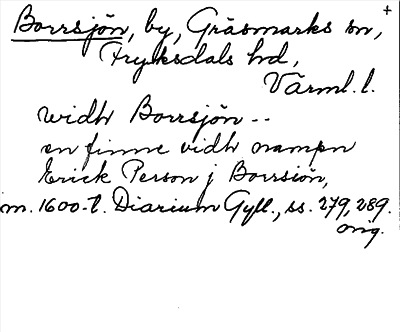 Borrsjön, by, Gräsmarks sn, +
Fryksdals hd,
Värml. l.
widh Borrsjön --
en finne vidh nampn
Erick Person j Borrsiön,
m. 1600-t. Diarium Gyll., ss. 279, 289.
orig.